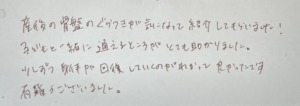 産後の骨盤のぐらつきが気になって紹介してもらいました！
子どもと一緒に通えるところがとても助かりました。
少しずつ動きが回復していくのがわかって良かったです
有難うございました。